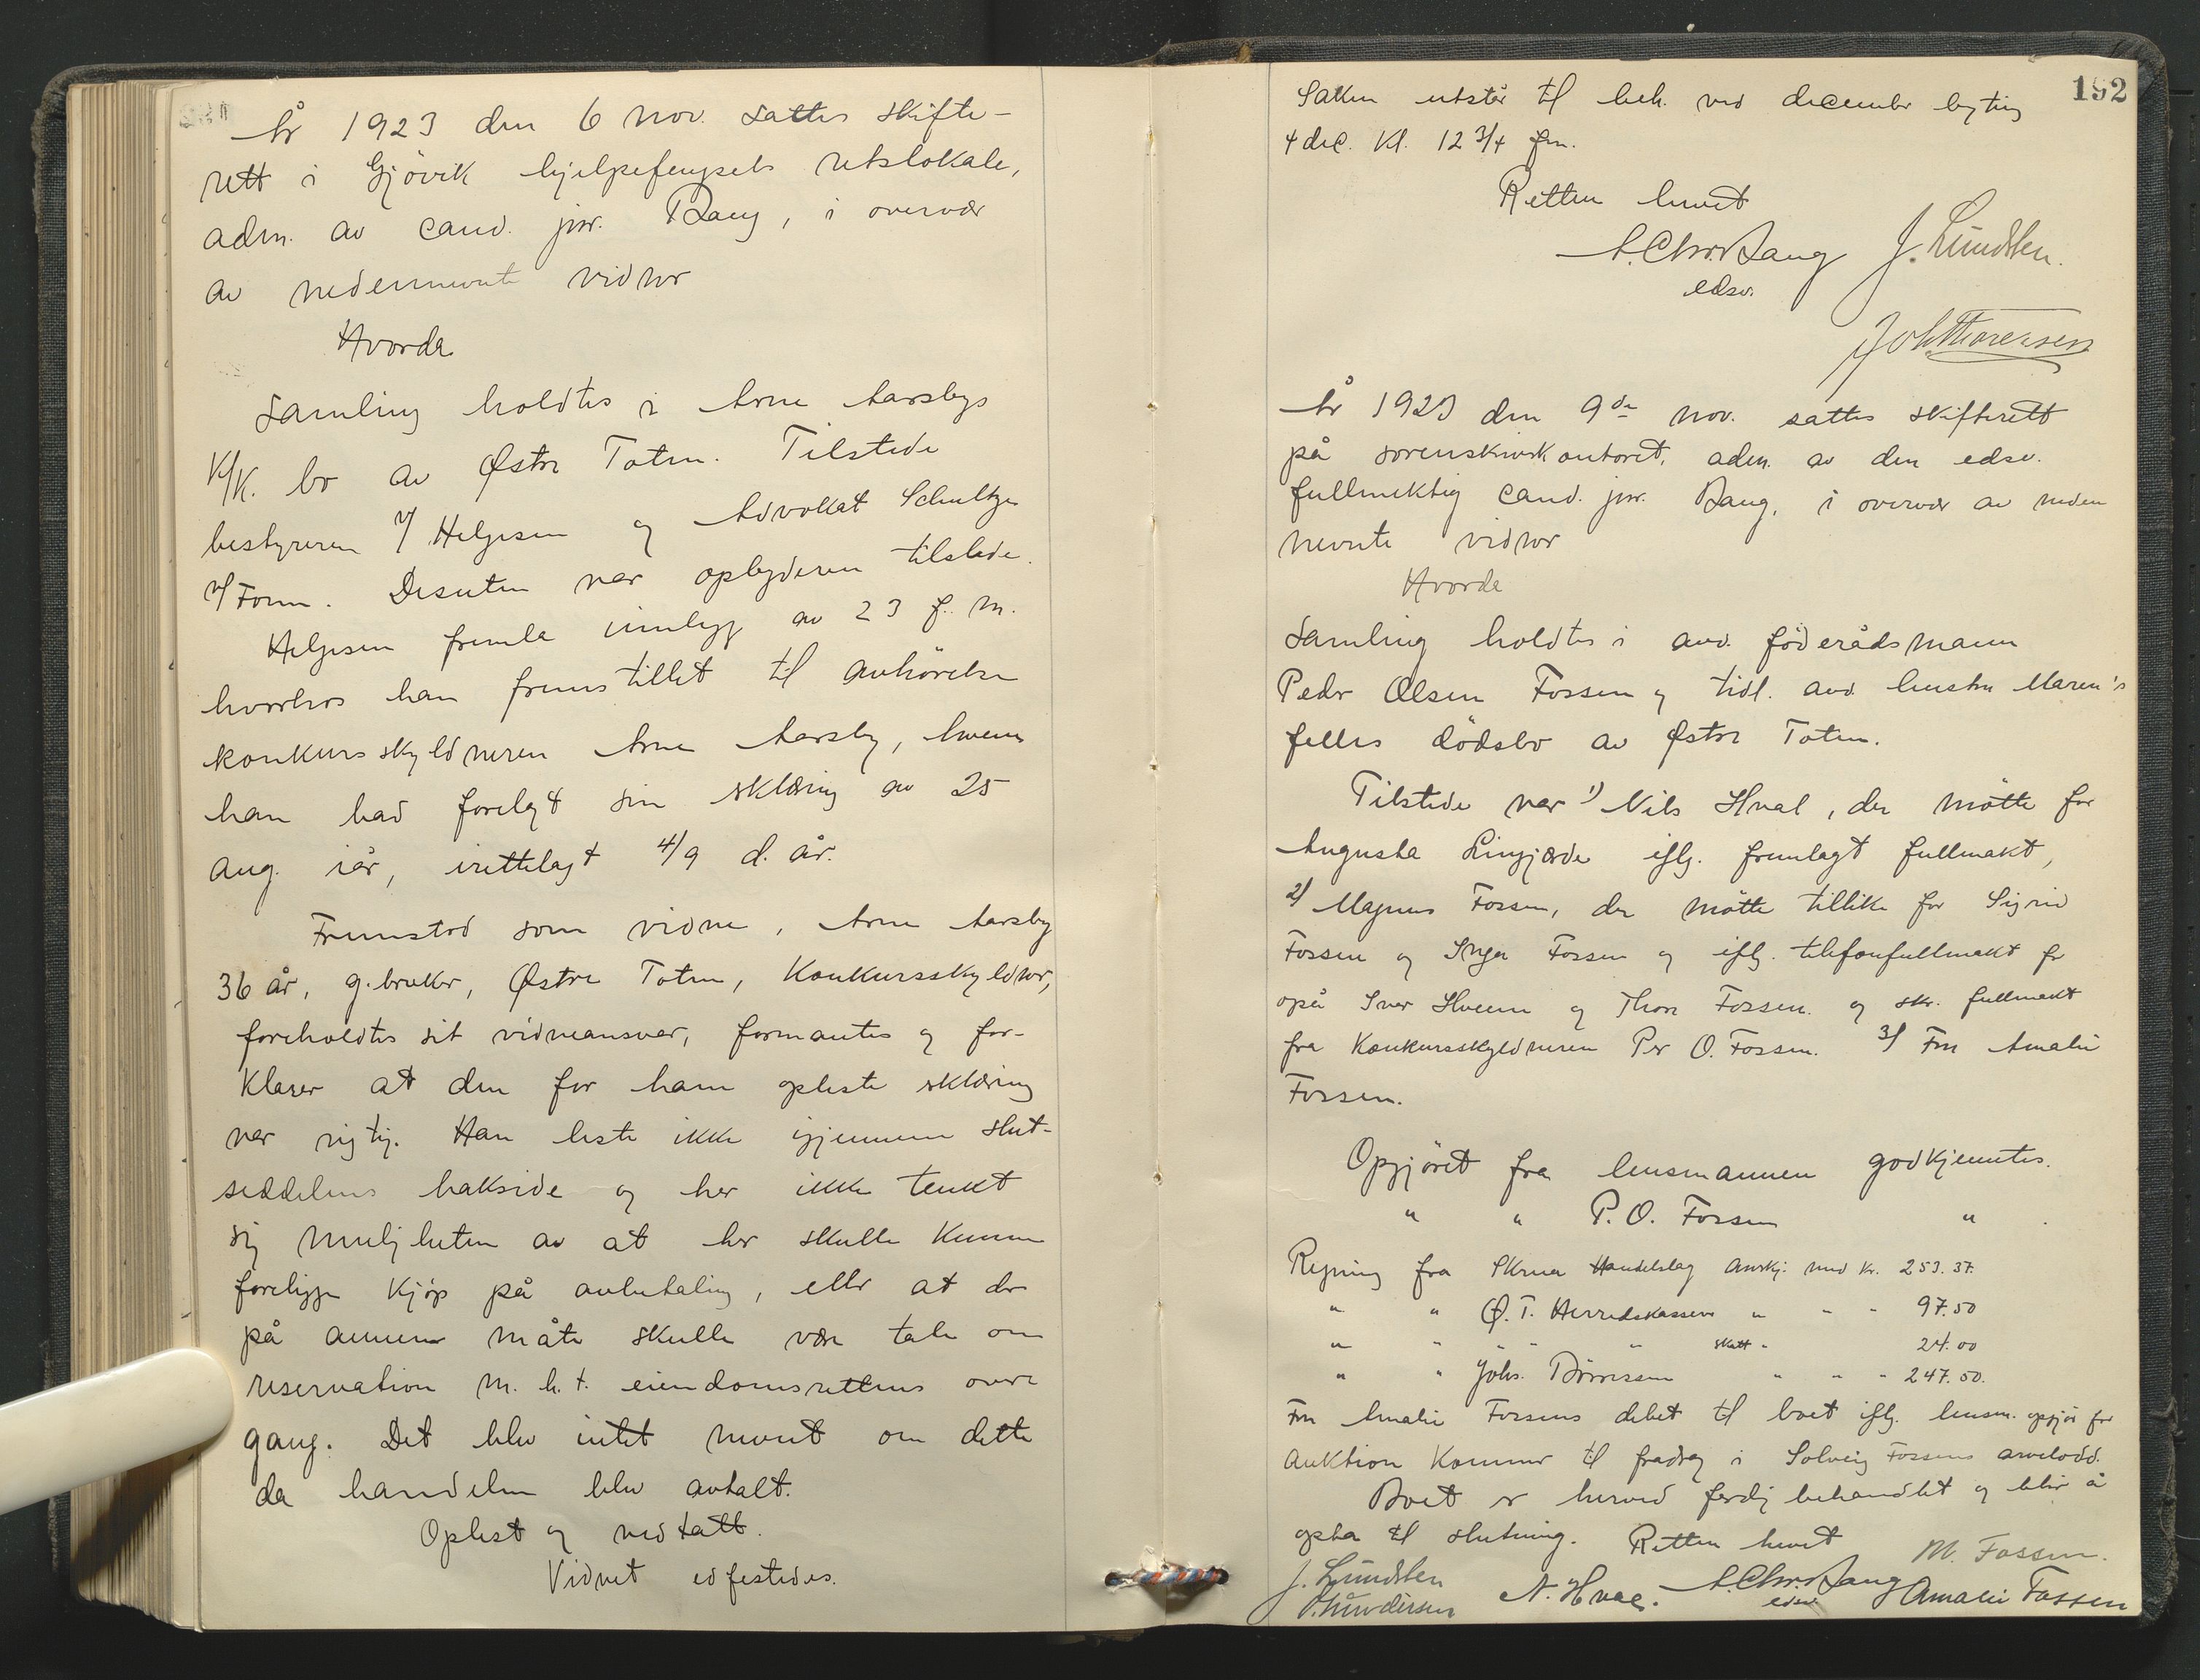 År 1923 den 6 nov. sattes skifte-
rett i Gjövik hjelpefengsels retslokale,
adm. av cand. jur. Bang, i overvær
av nedennevnte vidner
Hvorda
Samling holdtes i Arne Aarsbys
K/K. bo av Østre Toten. Tilstede
bestyreren v/ Helgesen og Advokat Schultze
v/ Form. Desuten var opbyderen tilstede.
Helgesen fremla innlegg av 23 f. m.
hvorhos han fremstillet til avhörelse
konkursskyldneren Arne Aarsby, hvem
han bad forelagt sin erklæring av 25
aug. iår, irettelagt 4/9 d. år.
Fremstod som vidne, Arne Aarsby
36 år, g.bruker, Østre Toten, Konkursskyldner,
foreholdtes sit vidneansvar, formantes og for-
klarer at den for ham opleste erklæring
var rigtig. Han leste ikke igjennem slut-
seddelens bakside og har ikke tenkt
sig muligheten av at her skulle kunne
foreligge kjøp på avbetaling, eller at der
på annen måte skulle være tale om
reservation m. h. t. eiendomsrettens over-
gang. Det blev intet nevnt om dette
da handelen blev avtalt.
Oplest og vedtatt.
Vidnet edfestedes.
192
Saken utstår til beh. ved december bytng
4 dec. Kl. 12 3/4 fm.
Retten hevet
A. Chr. Bang J. Lundsten.
edsv.
Joh Thoresen
År 1923 den 9de nov. sattes skifterett
på sorenskriverkontoret, adm. av den edsv.
fullmektig cand. jur. Bang, i overvær av neden
nevnte vidner
Hvorda
Samling holdtes i avd. föderådsmann
Peder Olsen Fossen og tidl. avd. hustru Maren's
felles dödsbo av Østre Toten.
Tilstede var 1) Nils Hval, der mötte for
Augusta Lingjærde iflg. fremlagt fullmakt,
2) Magnus Fossen, der mötte tillike for Sigrid
Fossen og Inga Fossen og iflg. telefonfullmakt fr
også Iver Hveem og Thora Fossen. og skr. fullmakt
fra Konkursskyldneren Per O. Fossen. 3) Fru Amalie
Fossen.
Opgjöret fra lensmannen godkjentes.
" " P. O. Fossen "
Regning fra Skreia Handelslag anerkj. med kr. 253.37.
" " Ø. T. Herredskassen " " " 97.50
" " " " " skatt " 24.00
" " Johs. Börresen " " " 247.50.
Fru Amalie Fossens debet til boet iflg. lensm. opgjör for
auktion kommer til fradrag i Solveig Fossens arvelodd.
Boet er herved ferdig behandlet og blir å
opta til slutning. Retten hevet M. Fossen.
J. Lundsten N. Hval. A. Chr. Bang Amalie Fossen
edsv.